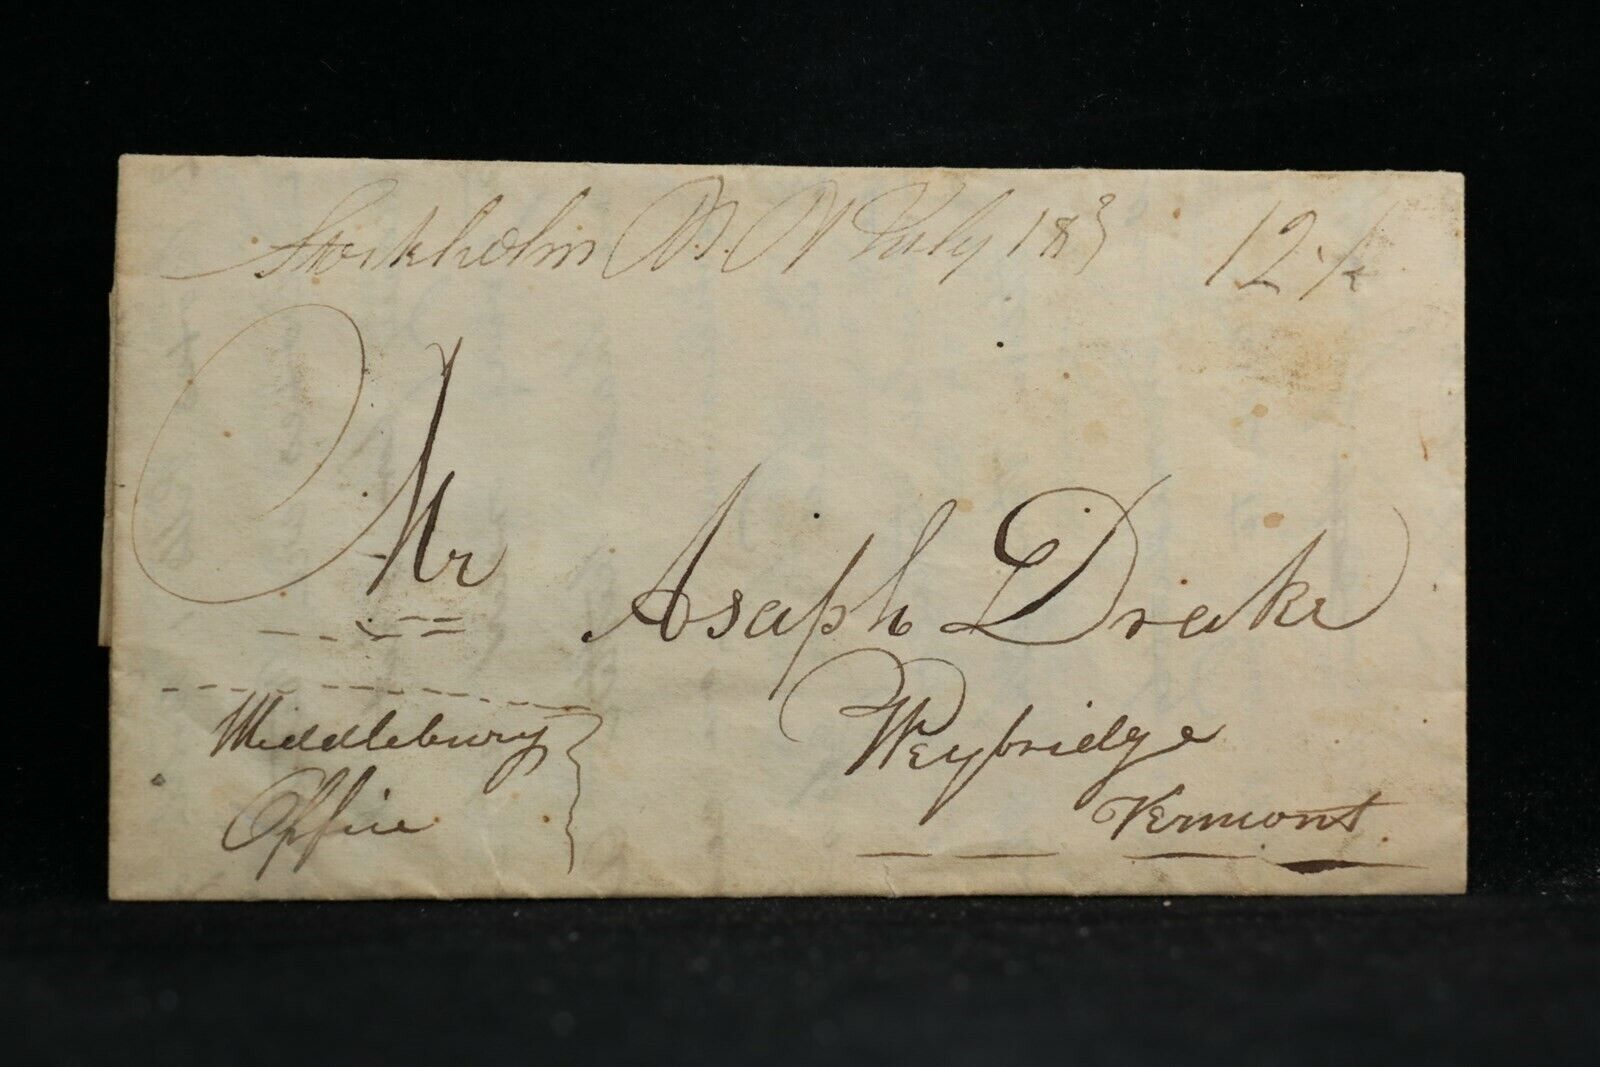 Stockholm N. Y July 18
12 ½
Mr
Asaph Drake
Weybridge
Vermont
Middlebury
Office